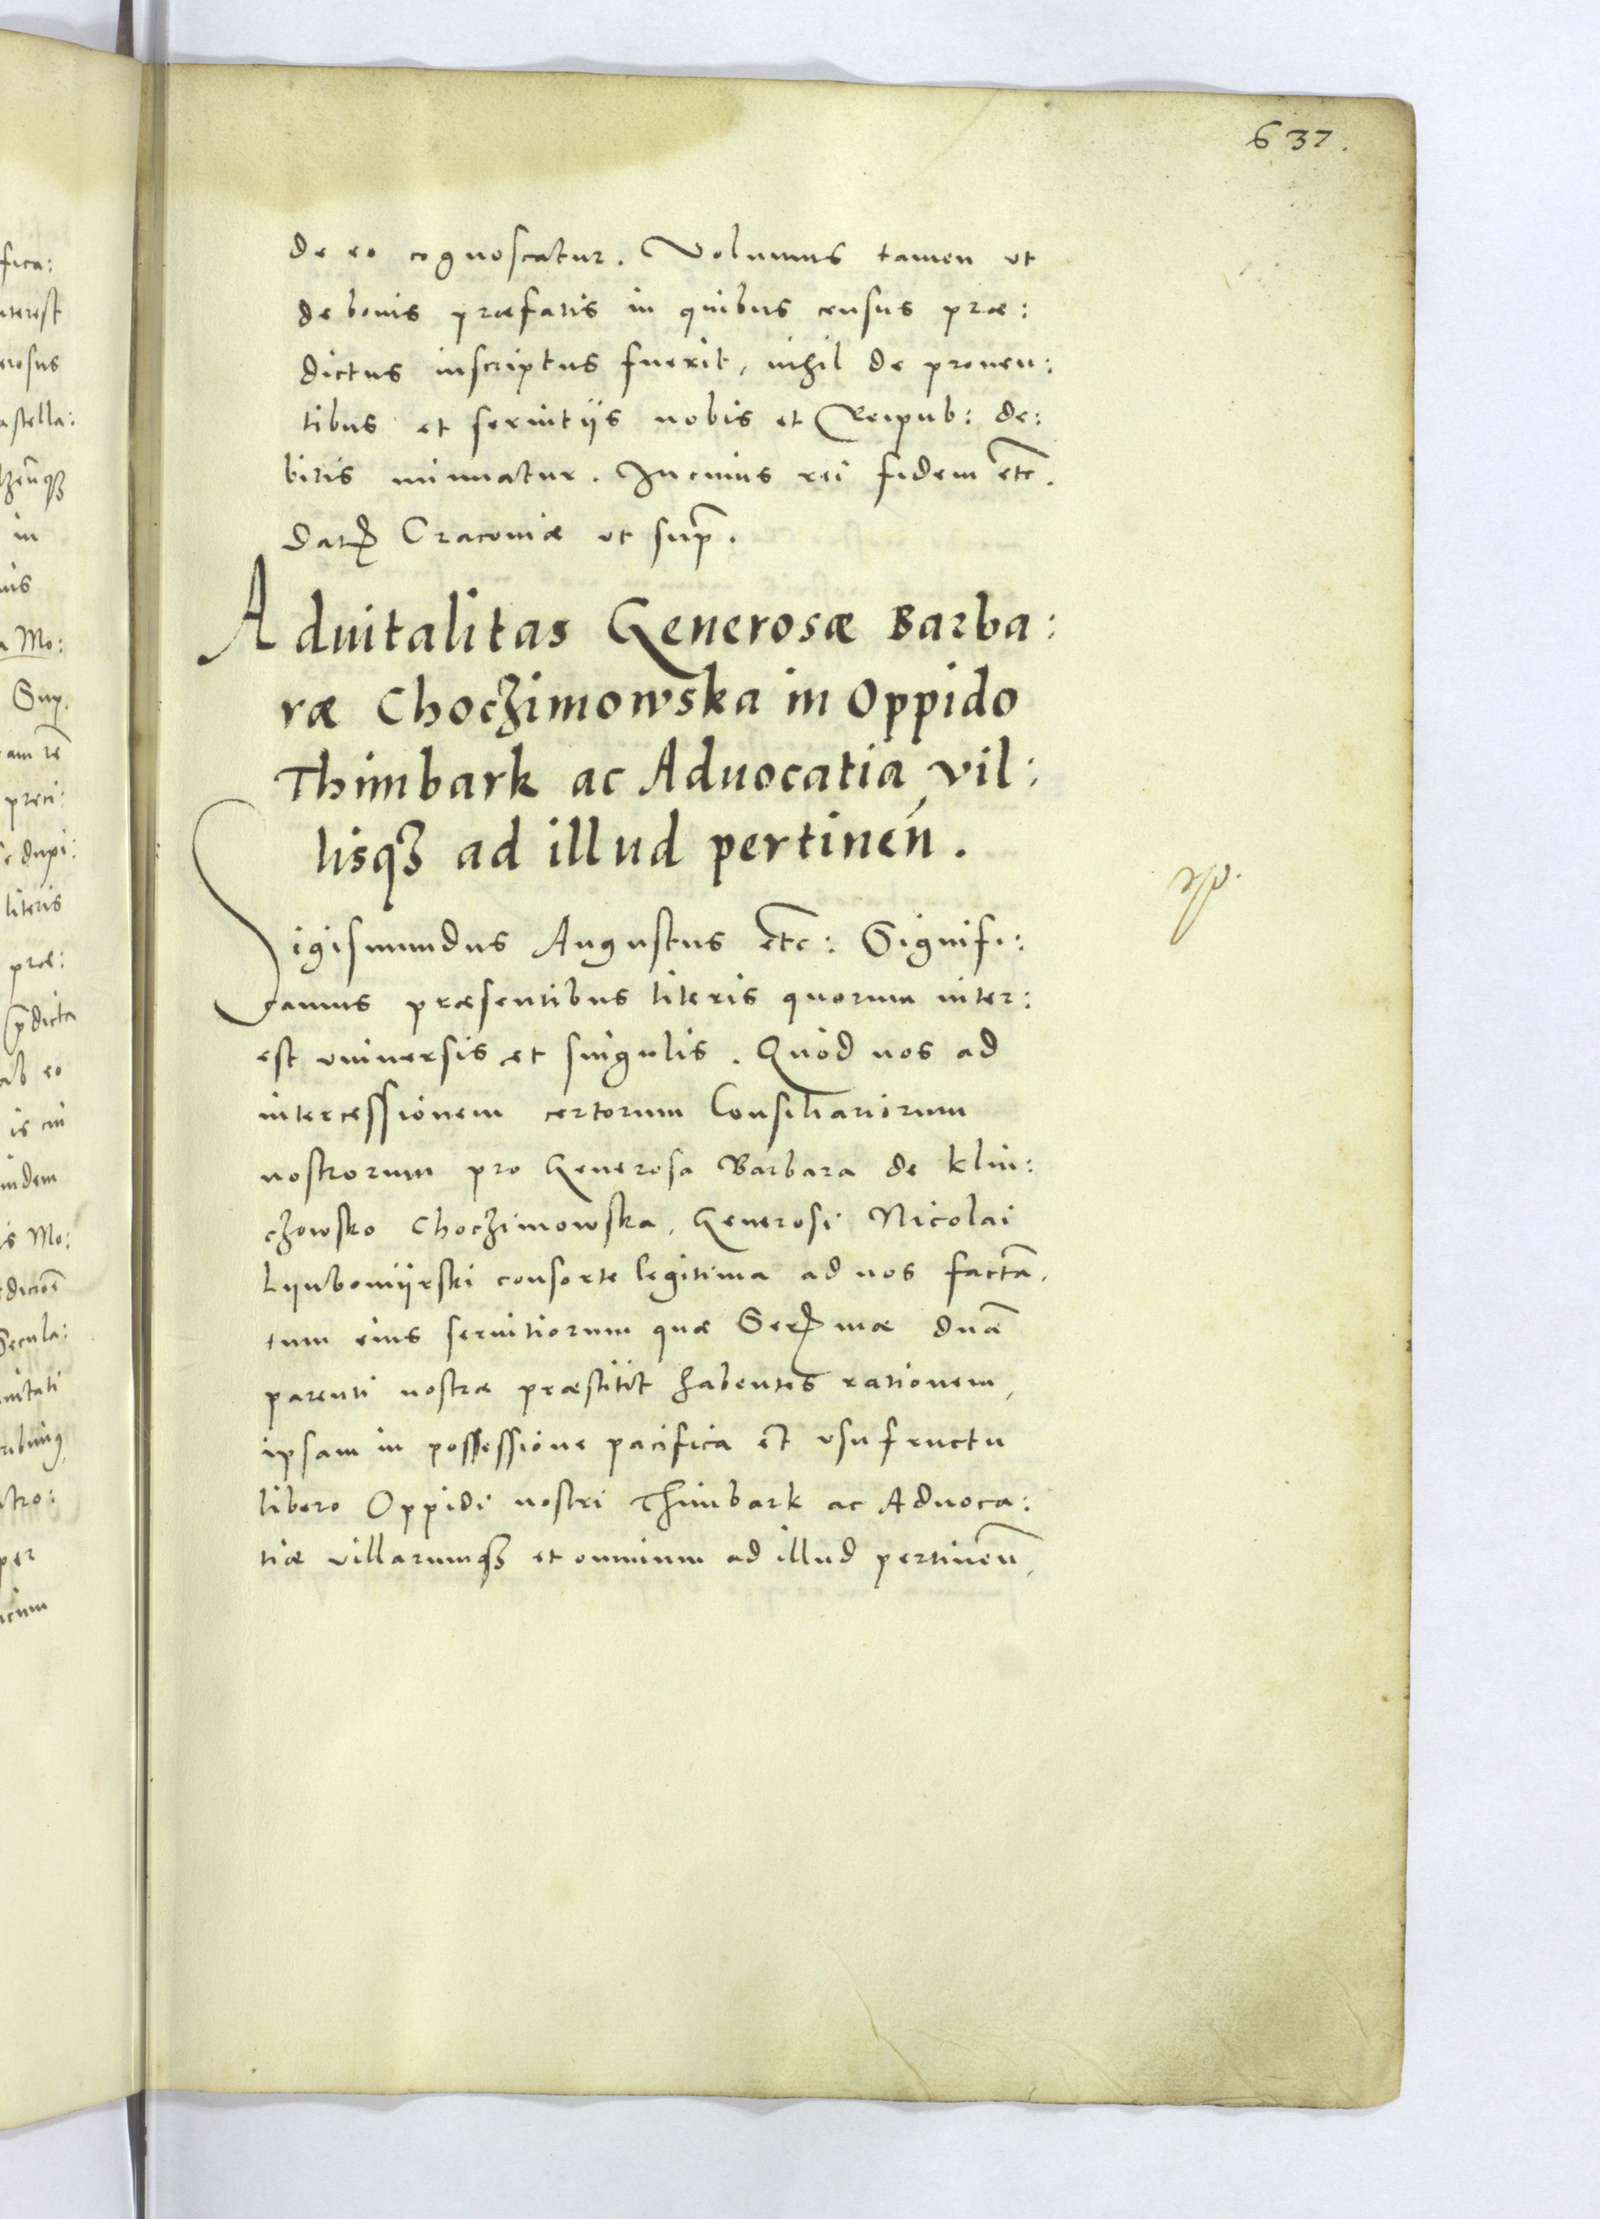 637.
de eo cognoscatur. Volumus tamen ut
de bonis præfatis in quibus census præ:
dictus inscriptus fuerit, nihil de proven:
tibus et servitijs nobis et Reipub: de:
bitis minuatur. In cuius rei fidem etc.
Craconiæ ut
Advitalitas Generosæ Barba:
ræ Choczimowska in Oppido
Thimbark ac Aduocatia vil:
lisqꝫ ad illud pertineñ.
Sigismundus Augustus etc: Signifi:
camus præsentibus literis quorum inter:
est vniuersis et singulis. Quod nos ad
intercessionem certorum Consiliariorum
nostrorum pro Generosa Barbara de Klin:
czowsko Choczimowska, Generosi Nicolai
Lijubomijrski consorte legitima ad nos factã,
tum eius seruitiorum quæ duæ
parenti nostræ præstitit habentes rationem,
ipsam in possessione pacifica et vsufructu
libero Oppidi nostri Thimbark ac Aduoca:
tiæ villarumqꝫ et omnium ad illud pertineñ,